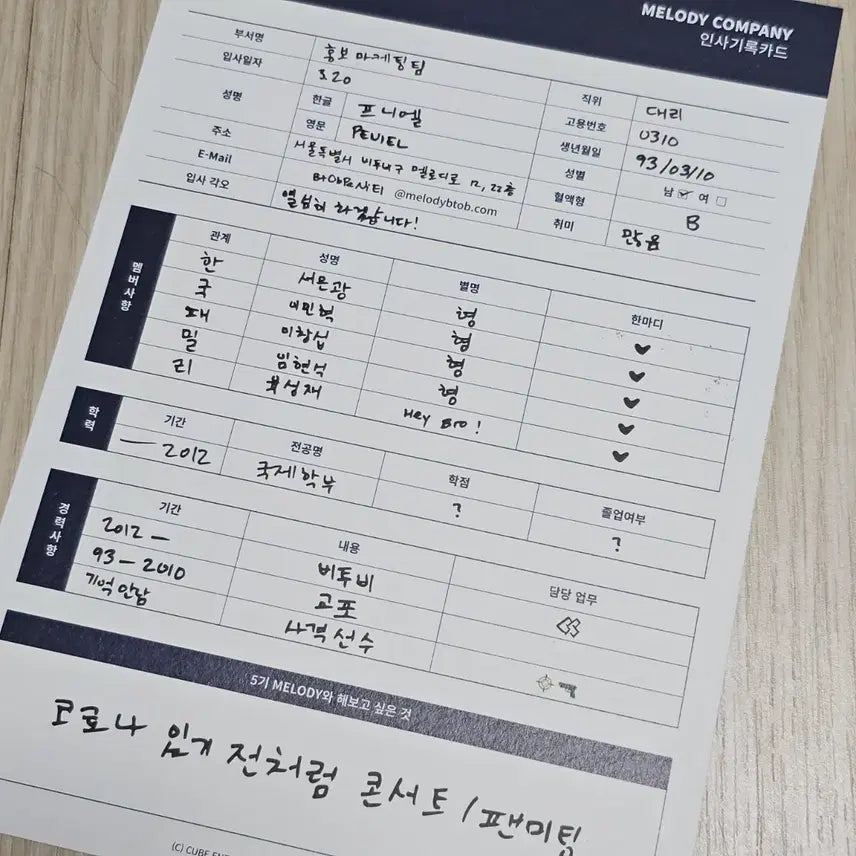 MELODY COMPANY
인사기록카드
부서명 홍보마케팅팀 직위 대리
입사일자 320 고용번호 0310
성명 한글 프니엘 생년월일 93/03/10
영문 PENIEL 성별 남 여
주소 서울특별시 비투비구 멜로디로 12, 22층 혈액형 B
E-Mail @melodybtob.com 취미 많음
입사 각오 열심히 하겠습니다!
멤버사항
관계 성명 별명 한마디
한 서은광 형 ♥
국 이민혁 형 ♥
패 이창섭 형 ♥
밀 임현식 형 ♥
리 육성재 Hey Bro! ♥
학력
기간 전공명 학점 졸업여부
— 2012 국제학부 ? ?
경력사항
기간 내용 담당 업무
2012 — 비투비
93 — 2010 교포
기억안남 사격선수
5기 MELODY와 해보고 싶은 것
코로나 있기 전처럼 콘서트 / 팬미팅
(C) CUBE